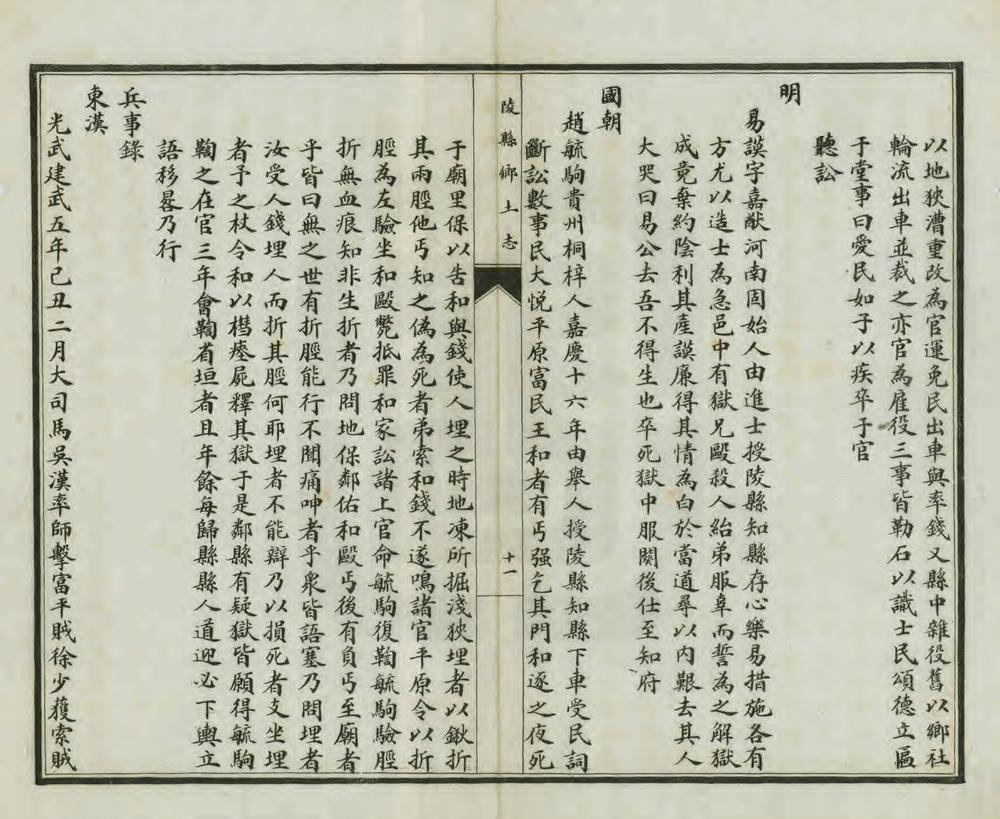 以地狹漕重改為官運免民出車與率錢又縣中雜役舊以鄉社
輪流出車並裁之亦官為雇役三事皆勒石以識士民頌德立匾
于堂事曰愛民如子以疾卒于官
聽訟
明
易謨字嘉猷河南固始人由進士授陵縣知縣存心樂易措施各有
方尤以造士為急邑中有獄兄毆殺人紿弟服辜而誓為之解獄
成竟棄約陰利其產謨廉得其情為白於當道尋以內艱去其人
大哭曰易公去吾不得生也卒死獄中服闋後仕至知府
國朝
趙毓駒貴州桐梓人嘉慶十六年由舉人授陵縣知縣下車受民詞
斷訟數事民大悅平原富民王和者有丐强乞其門和逐之夜死
陵縣鄉土志
十一
于廟里保以告和與錢使人埋之時地凍所掘淺狹埋者以鍬折
其兩脛他丐知之偽為死者弟索和錢不遂鳴諸官平原令以折
脛為左驗坐和毆斃抵罪和家訟諸上官命毓駒復鞫毓駒驗脛
折無血痕知非生折者乃問地保鄰佑和毆丐後有負丐至廟者
乎皆曰無之世有折脛能行不聞痛呻者乎衆皆語塞乃問埋者
汝受人錢埋人而折其脛何耶埋者不能辯乃以損死者支坐埋
者予之杖令和以槥瘞屍釋其獄于是鄰縣有疑獄皆願得毓駒
鞫之在官三年會鞫省垣者且年餘每歸縣縣人道迎必下輿立
語移晷乃行
兵事錄
東漢
光武建武五年己丑二月大司馬吳漢率師擊富平賊徐少獲索賊